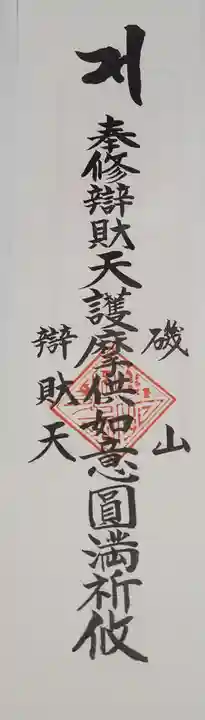 奉修辯財天護摩供如意圓滿祈攸
磯山
辯財天